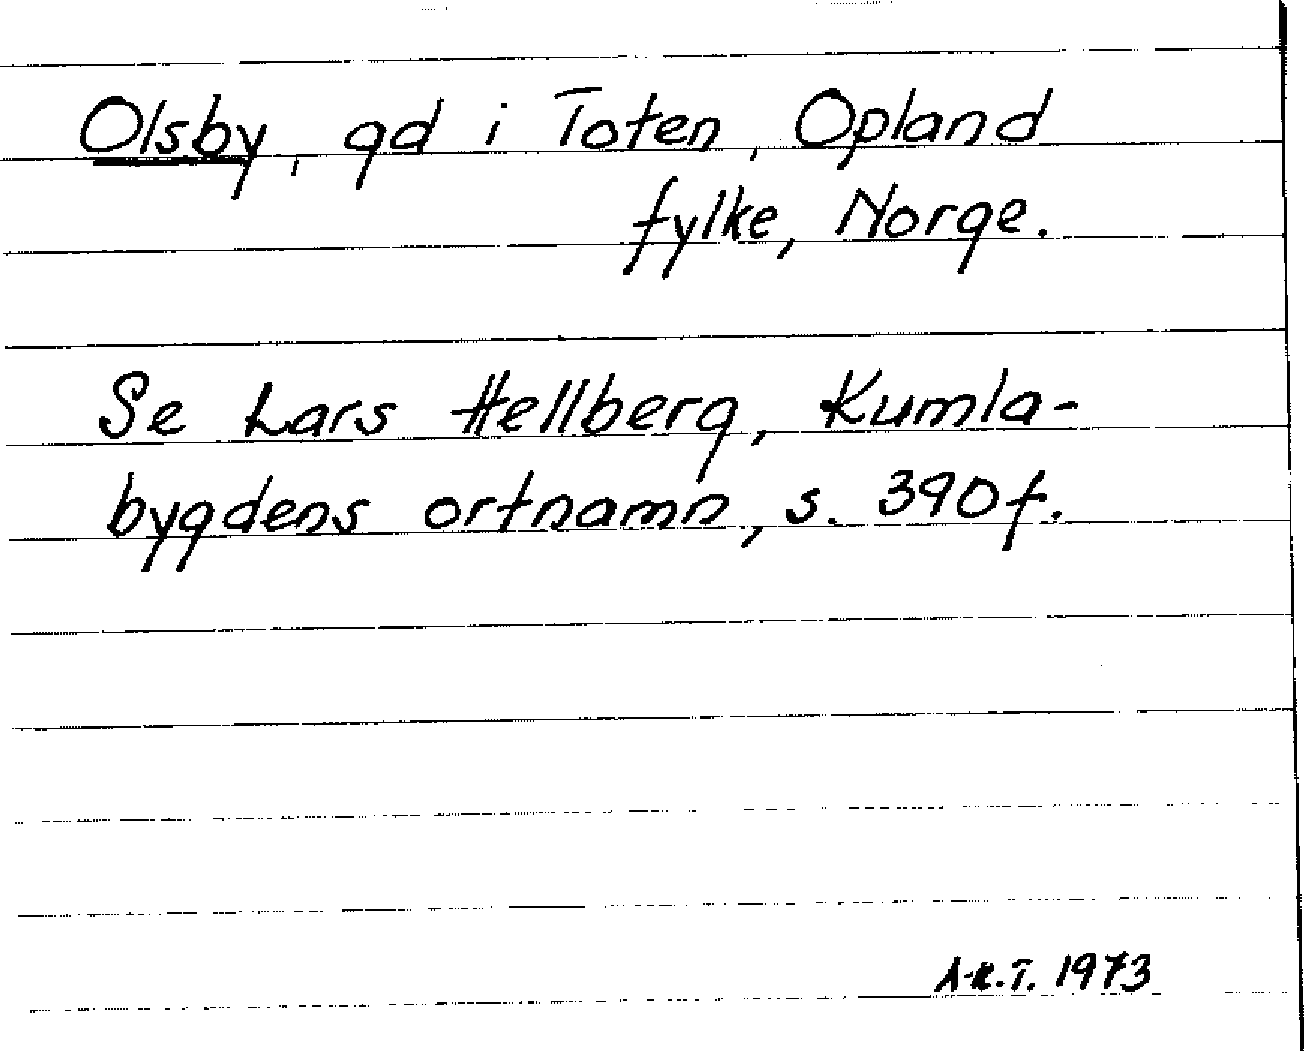 Olsby, gd i Toten, Opland
fylke, Norge.
Se Lars Hellberg, Kumla-
bygdens ortnamn, s. 390f.
A-K.T. 1973